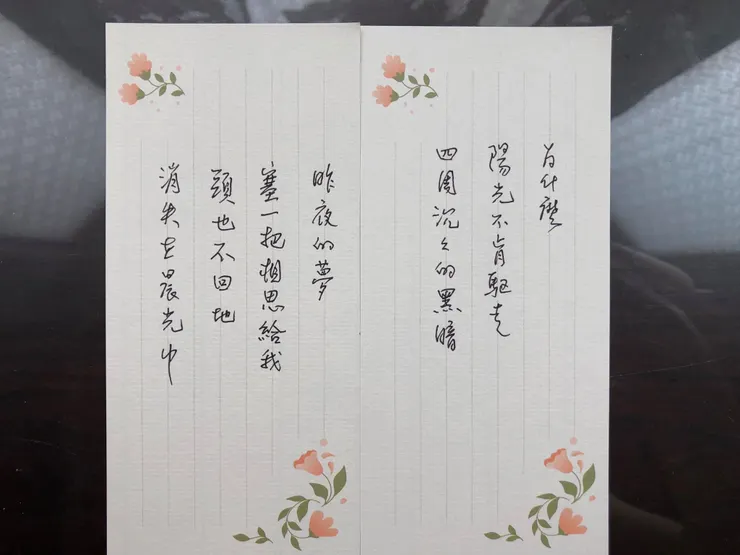 为什麼
陽光不肯駆走
四周沉沉的黑暗
昨夜的夢
塞一把相思給我
頭也不回地
消失在晨光中